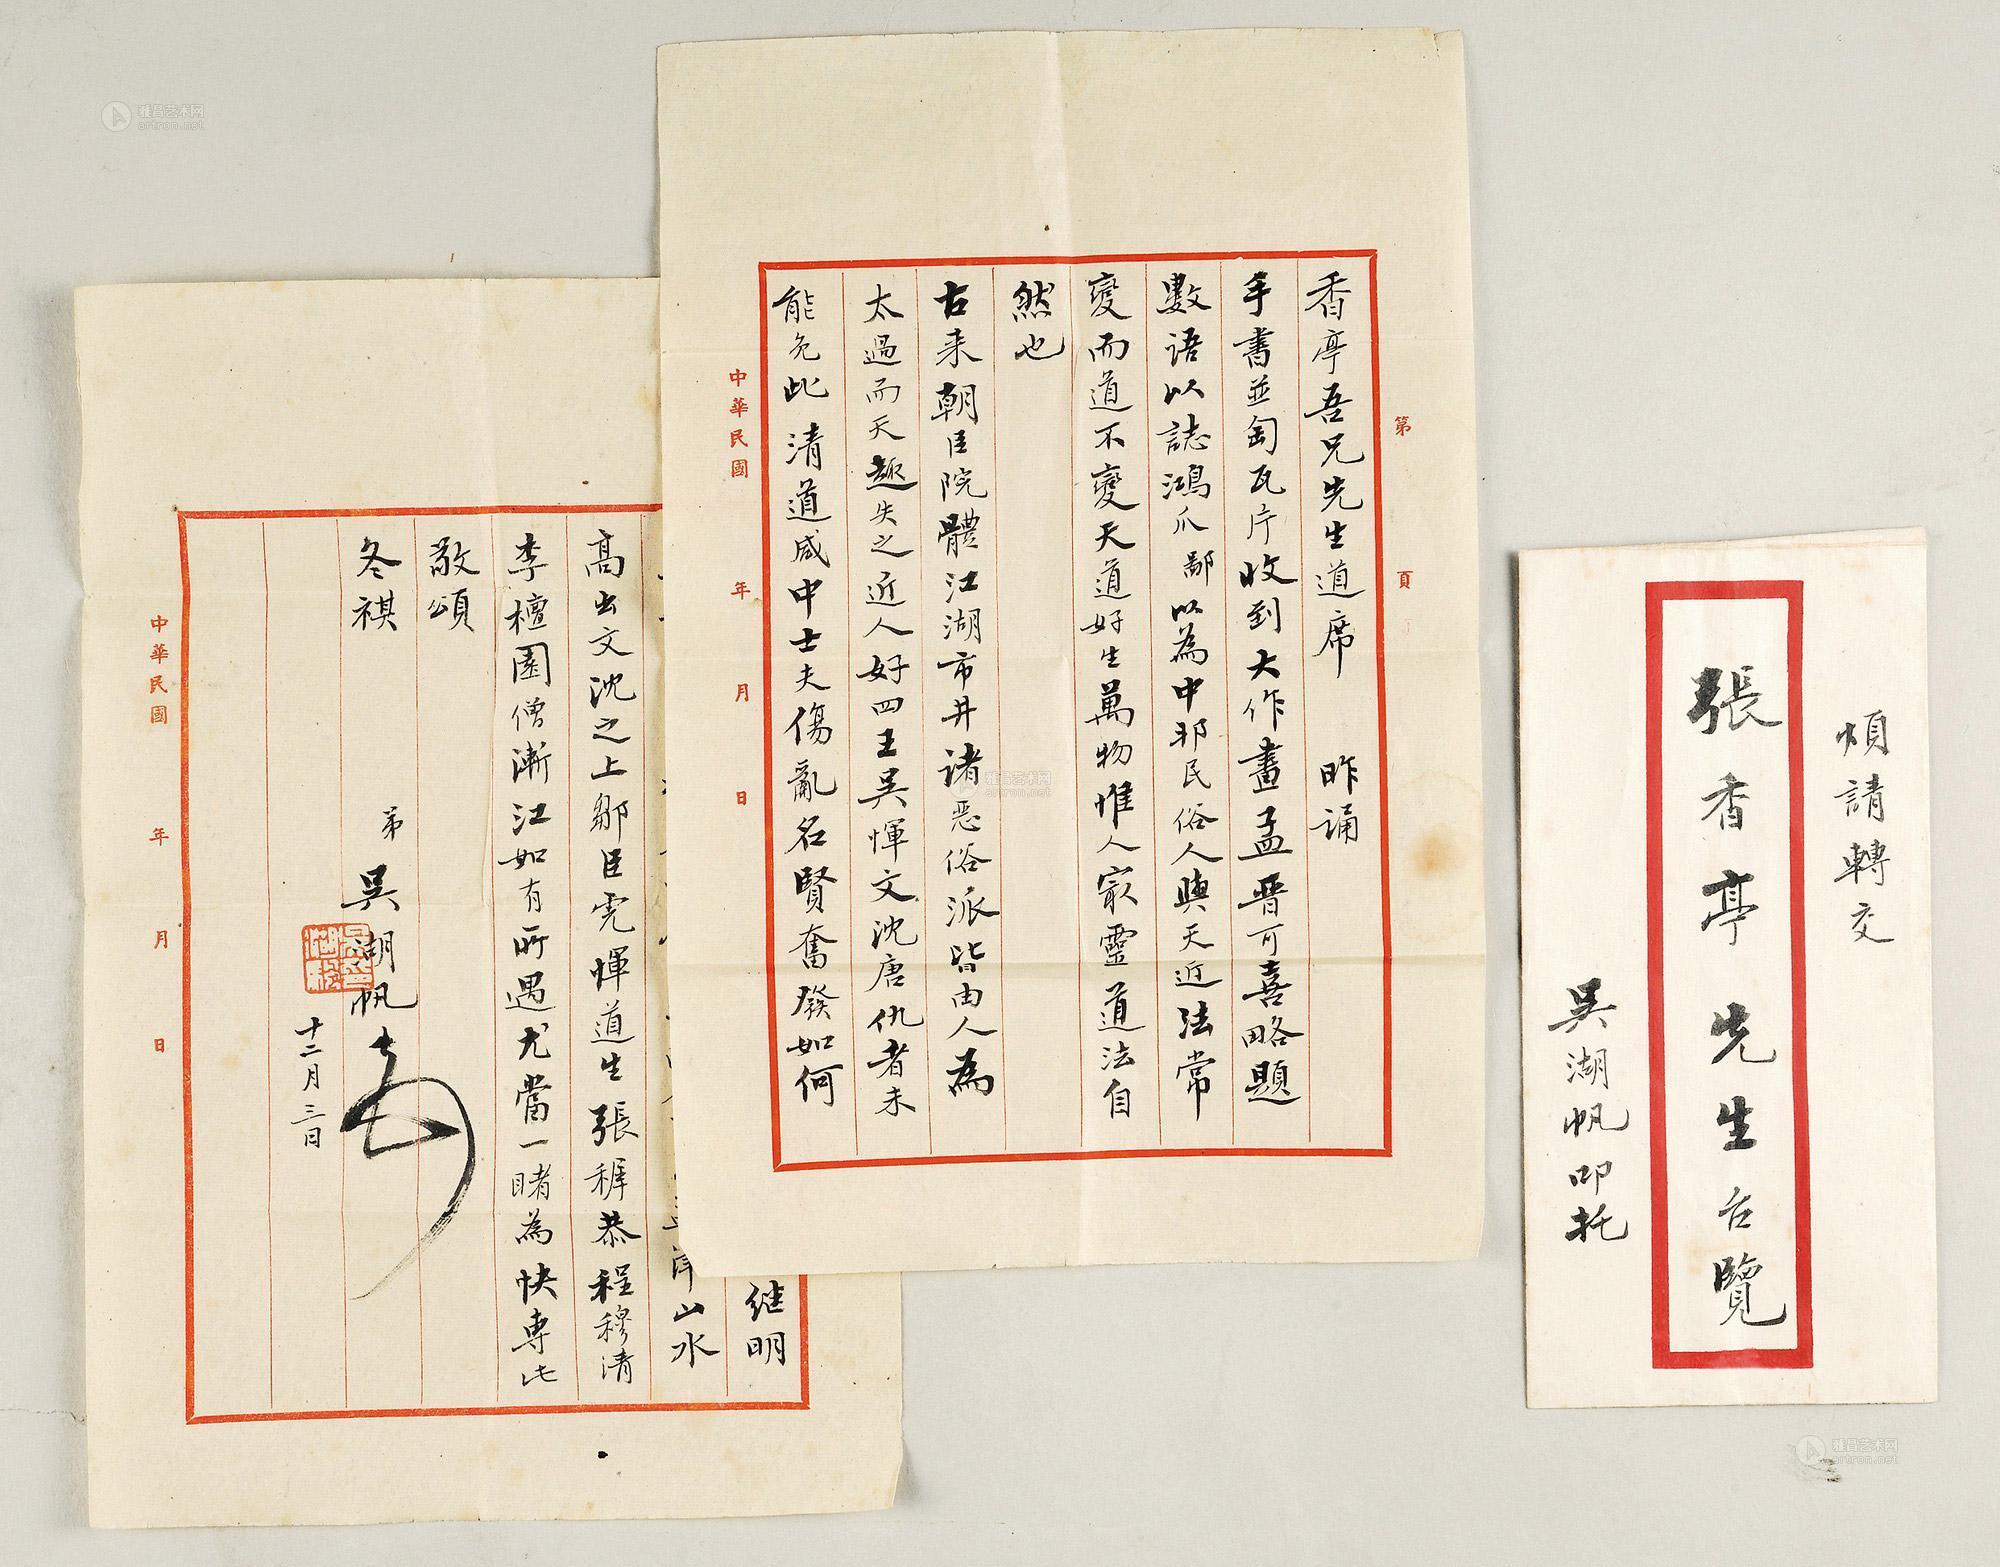 香亭吾兄先生道席 昨誦
手書並匋瓦片收到大作畫孟晋可喜略題
數語以誌鴻爪鄙以為中邦民俗人與天近法常
變而道不變天道好生萬物惟人最靈道法自
然也
古来朝臣院體江湖市井諸惡俗派皆由人為
太過而天趣失之近人好四王吳惲文沈唐仇者未
能免此清道咸中士夫傷亂名賢奮發如何
第 頁
中華民國 年 月 日
继明
山水
高出文沈之上鄒臣虎惲道生張穉恭程穆清
李檀園僧漸江如有所遇尤當一睹為快専此
敬頌
冬祺
弟 吳湖帆
十二月三日
中華民國 年 月 日
煩請轉交
張香亭先生台覽
吳湖帆叩托
雅昌艺术网
artron.net
雅昌艺术网
artron.net
雅昌艺术网
artron.net